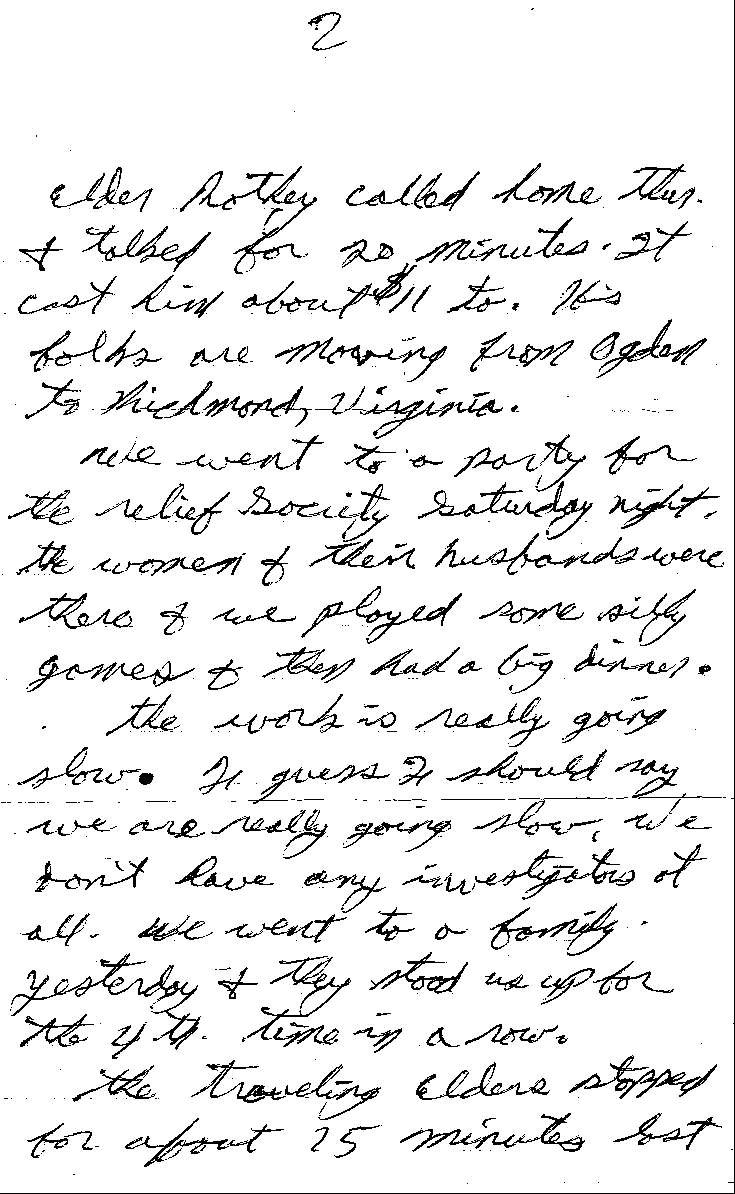 2
Elder Rothey called home Thur.
& talked for 20 minutes. It
cost him about $11 to. His
folks are moving from Ogden
to Richmond, Virginia.
We went to a party for
the relief Society Saturday night.
the women & their husbands were
there & we played some silly
games & then had a big dinner.
the work is really going
slow. I guess I should say
we are really going slow, we
don't have any investigators at
all. We went to a family
yesterday & they stood us up for
the 4th. time in a row.
the traveling Elders stopped
for about 15 minutes last